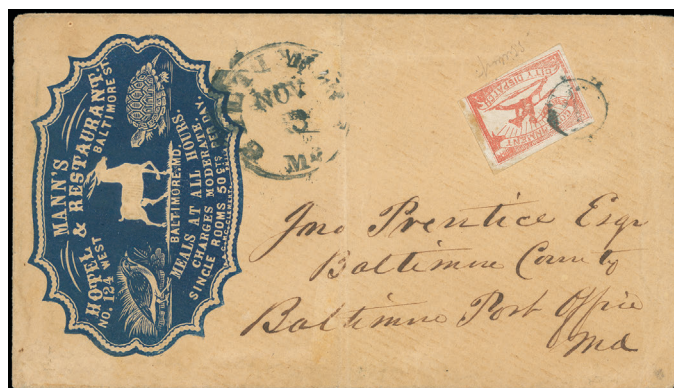 MANN'S
HOTEL & RESTAURANT,
NO. 124 WEST BALTIMORE ST.
BALTIMORE, MD.
MEALS AT ALL HOURS.
CHARGES MODERATE.
SINGLE ROOMS 50 CTS. PER DAY.
NOV
3
Md
CITY DISPATCH
GOVERNMENT
Jno Prentice Esqr
Baltimore County
Baltimore Post Office
Md